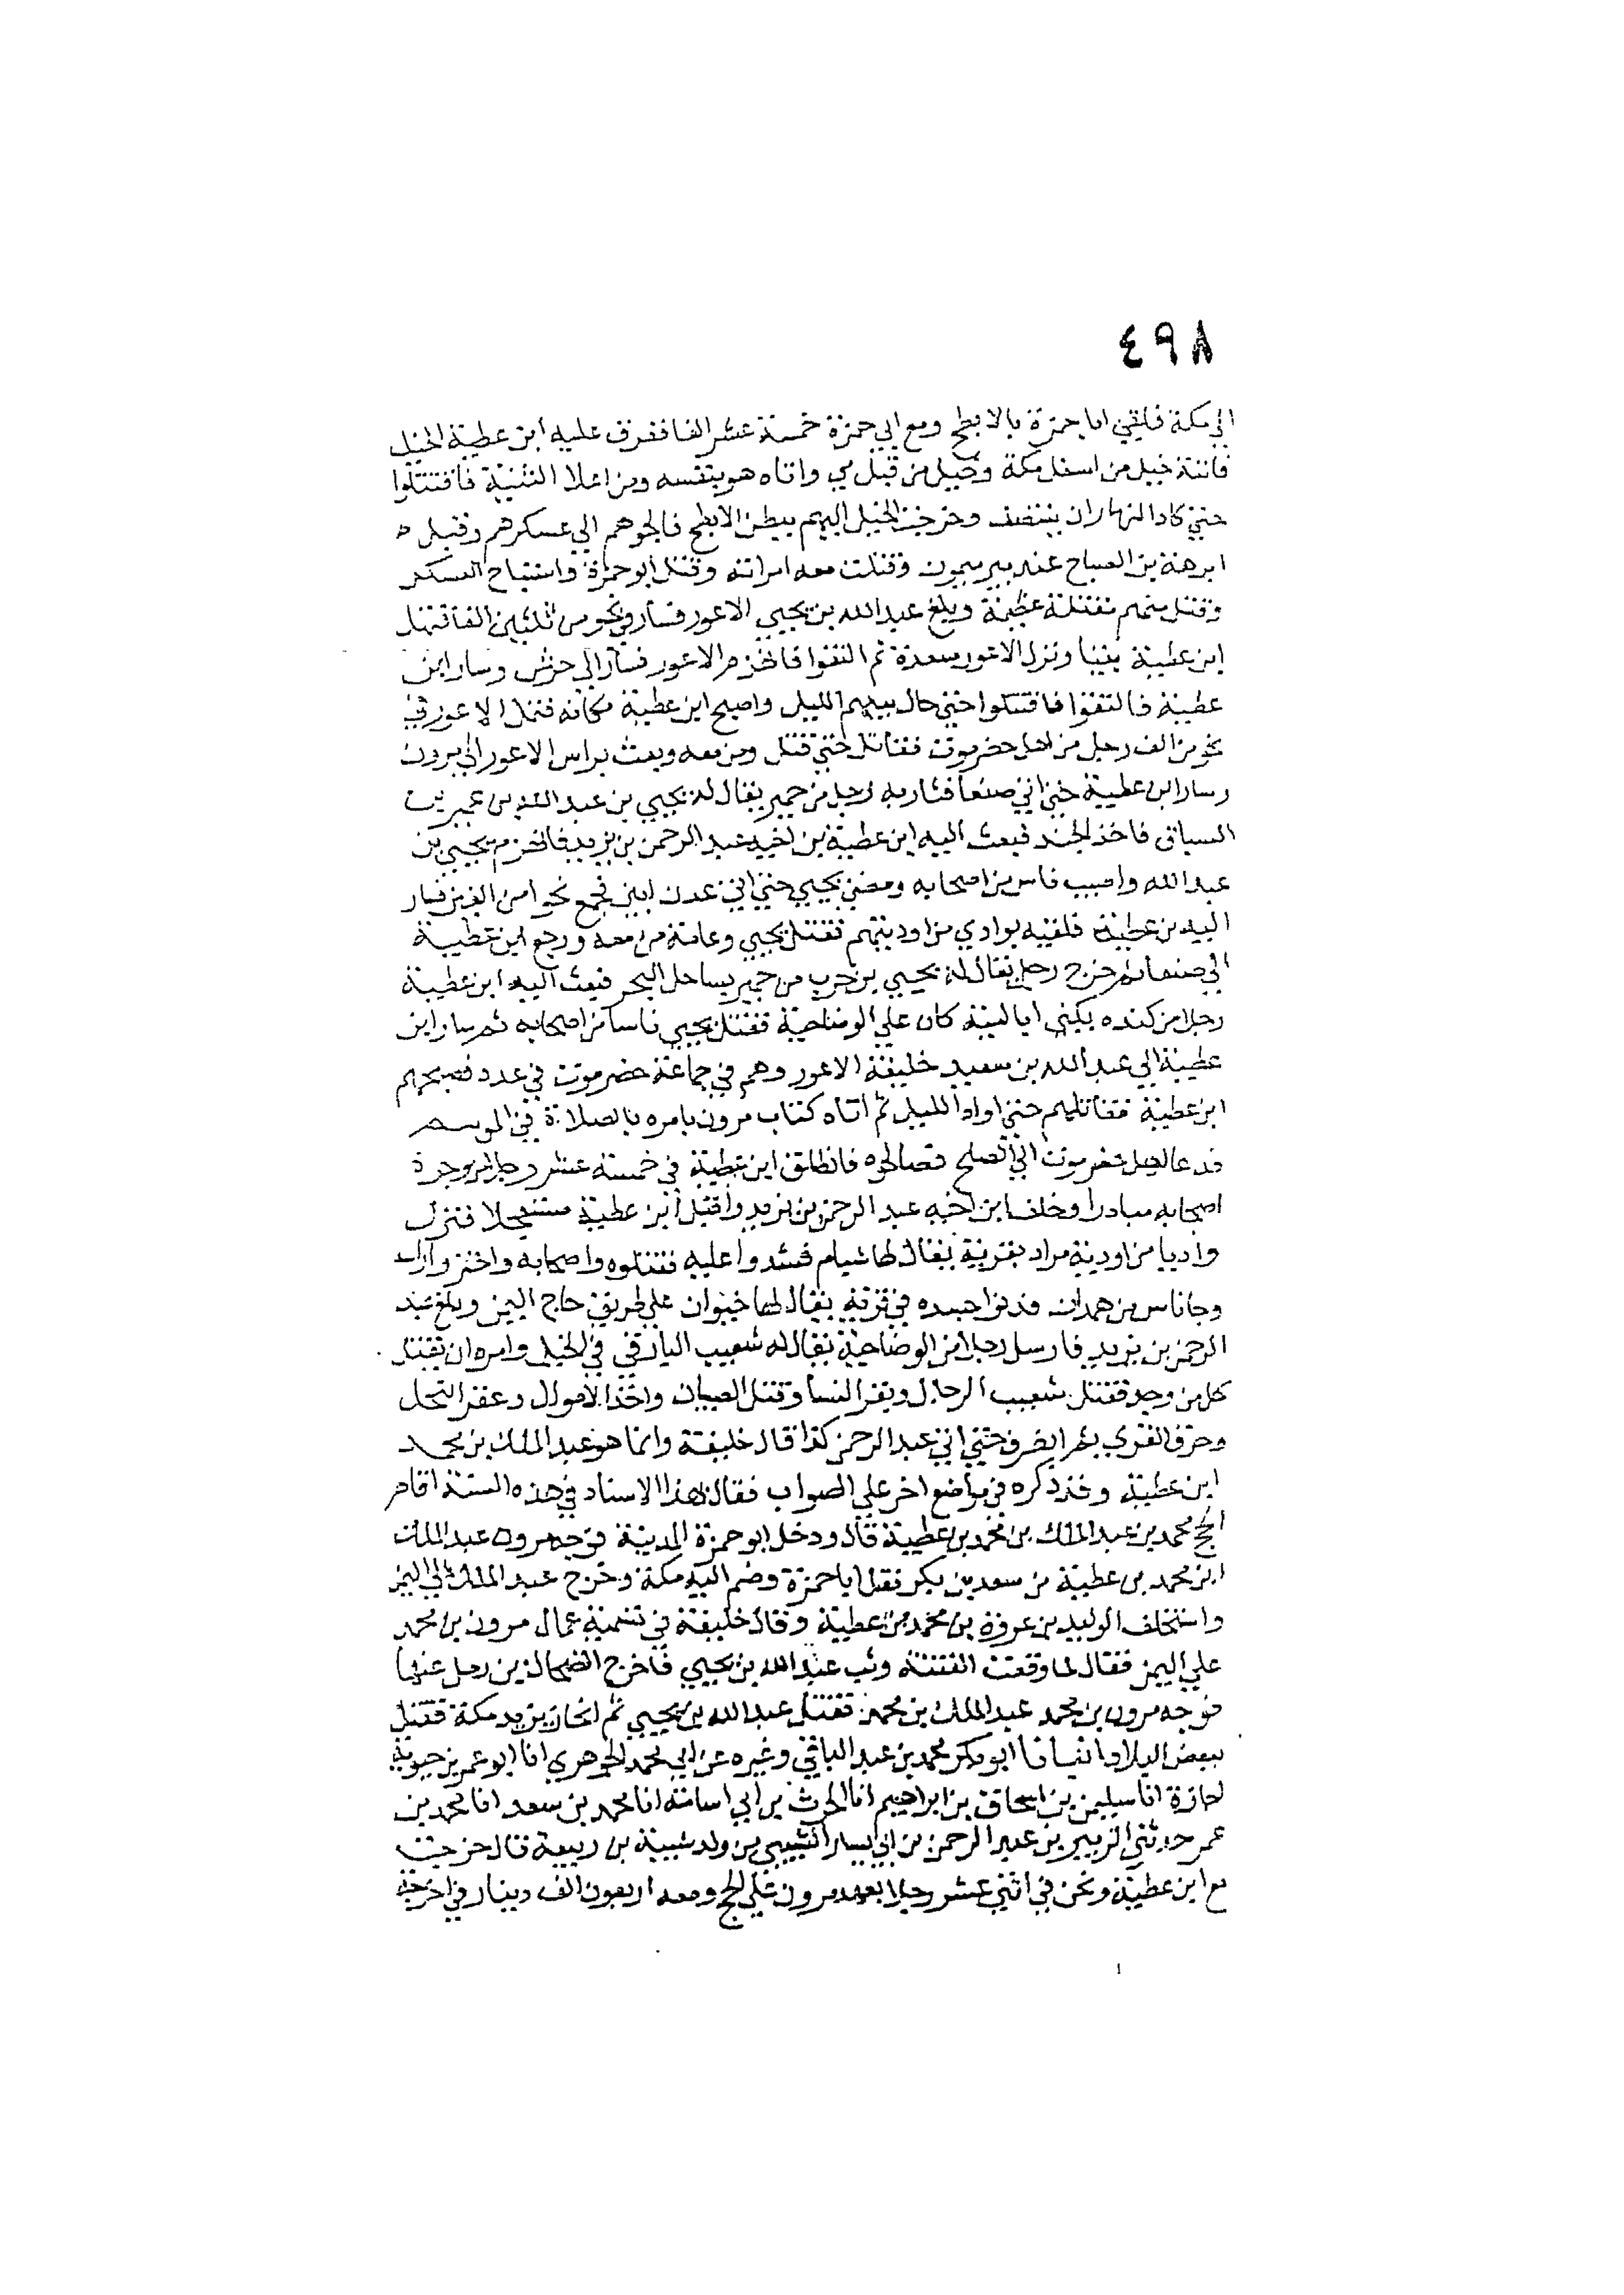 ٤٩٨
الي مكة فلقي ابا حمزة بالابطح ومع ابي حمزة خمسة عشر الفا ففرق عليه ابن عطية الخيل
فاتته خيل من اسفل مكة وخيل من قبل مني واتاه هو بنفسه ومن اعلا الثنية فاقتتلوا
حتي كاد النهار ان ينتصف وخرجت الخيل اليهم ببطن الابطح فالجوهم الي عسكرهم وقتل
ابرهة بن الصباح عند بير ميمون وقتلت معه امراته وقتل ابو حمزة واستباح العسكر
وقتل منهم مقتلة عظيمة وبلغ عبد الله بن يحيي الاعور فسار في نحو من ثلثين الفا
ابن عطية ونزل الاعور صعدة ثم التقوا فانهزم الاعور فسار الي جرش وسار ابن
عطية فالتقوا فاقتتلوا حتي حال بينهم الليل واصبح ابن عطية مكانه فنزل الاعور في
نحو من الف رجل من اهل حضرموت فقاتل حتي قتل ومن معه وبعث براس الاعور الي مرون
وسار ابن عطية حتي اتي صنعا فثار به رجل من حمير يقال له يحيي بن عبد الله بن عمير بن
السباق فاخذ الجند فبعث اليه ابن عطية بن اخيه عبد الرحمن بن يزيد فانهزم يحيي بن
عبد الله واصيب ناس من اصحابه ومضي يحيي حتي اتي عدن ابين فجمع نحوا من الفين فسار
اليه بن عطية فلقيه بوادي من اوديتهم فقتل يحيي وعامة من معه ورجع ابن عطية
الي صنعا ثم خرج رجل يقال له يحيي بن حرب من حمير بساحل البحر فبعث اليه ابن عطية
رجلا من كنده يكني ابا امية كان علي الوضاحية فقتل يحيي ناسا من اصحابه ثم سار ابن
عطية الي عبد الله بن سعيد خليفة الاعور وهم في جماعة حضرموت في عدد فصبحهم
ابن عطية فقاتلهم حتي الليل ثم اتاه كتاب مرون يامره بالصلاة في الموسم
فدعا اهل حضرموت الي الصلح فصالحوه فانطلق ابن عطية في خمسة عشر رجلا من وجوه
اصحابه مبادرا وخلف ابن اخيه عبد الرحمن بن يزيد واقبل ابن عطية مستعجلا فنزل
واديا من اودية مراد بقرية يقال لها شبام فشدوا عليه فقتلوه واصحابه واحتزوا راسه
وجا ناس من همدان فدفنوا جسده في قرية يقال لها خيوان علي طريق حاج اليمن وبلغ عبد
الرحمن بن يزيد فارسل رجلا من الوضاحية يقال له شعيب البارقي في الخيل وامره ان يقتل
كل من وجد فقتل شعيب الرجال وبقر النسا وقتل الصبيان واخذ الاموال وعقر النخل
وحرق القري ثم انصرف حتي اتي عبد الرحمن كذا قال خليفة وانما هو عبد الملك بن محمد
ابن عطية وقد ذكره في مواضع اخر علي الصواب فقال بهذا الاسناد في هذه السنة اقام
الحج محمد بن عبد الملك بن محمد بن عطية قال ودخل ابو حمزة المدينة فوجه مرون عبد الملك
ابن محمد بن عطية من سعد بن بكر فقتل ابا حمزة وضم اليه مكة وخرج عبد الملك الي اليمن
واستخلف الوليد بن عروة بن محمد بن عطية وقال خليفة في تسمية عمال مرون بن محمد
علي اليمن فقال لما وقعت الفتنة وثب عبد الله بن يحيي فاخرج الضحاك بن رمل عنها
فوجه مرون بن محمد عبد الملك بن محمد فقتل عبد الله بن يحيي ثم انحاز يريد مكة فقتل
ببعض البلاد انبانا ابو بكر محمد بن عبد الباقي وغيره عن ابي محمد الجوهري انا ابو عمر بن حيويه
اجازة انا سليمن بن اسحاق بن ابراهيم انا الحرث بن ابي اسامة انا محمد بن سعد انا محمد بن
عمر حدثني الزبير بن عبد الرحمن بن ابي يسار الشيبي من ولد شيبة بن ربيعة قال خرجت
مع ابن عطية ونحن في اثني عشر رجلا بعهد مرون علي الحج ومعه اربعون الف دينار في اخرجته